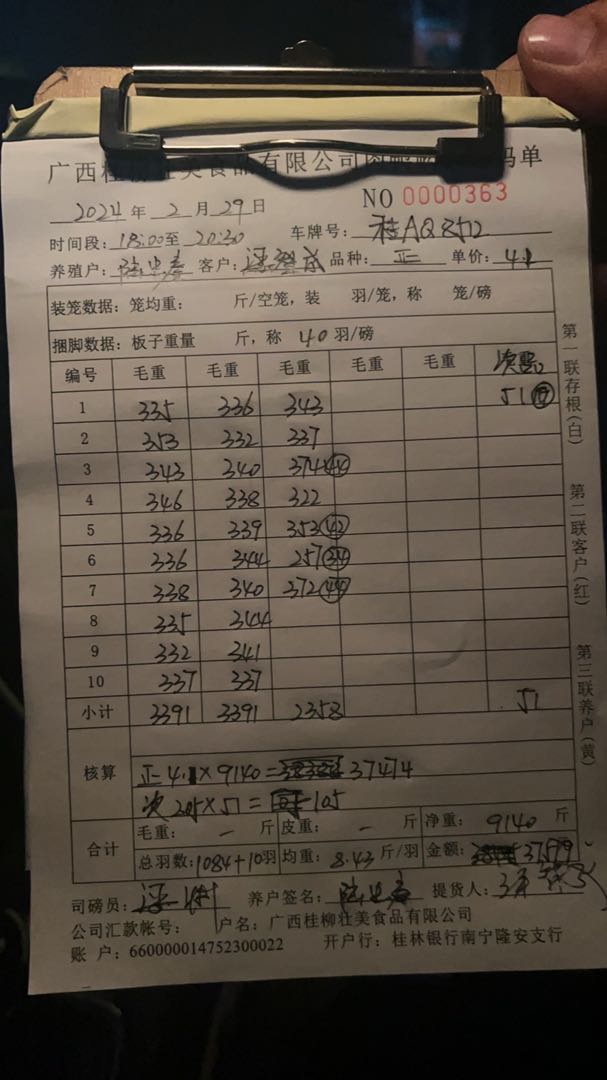 广西桂柳壮美食品有限公司 码单
NO 0000363
2024 年 2 月 29 日
时间段: 18:00至 20:30 车牌号: 桂AQ8512
养殖户: 客户: 品种: 正 单价: 4.1
装笼数据: 笼均重: 斤/空笼, 装 羽/笼, 称 笼/磅
捆脚数据: 板子重量 斤, 称 40 羽/磅
编号 毛重 毛重 毛重 毛重 毛重 次品
1 335 336 343 51 ⑩
2 353 332 337
3 343 340 374 44
4 346 338 322
5 336 339 353 42
6 336 344 257 34
7 338 340 372 44
8 335 344
9 332 341
10 337 337
小计 3391 3391 2358 51
核算 正 4.1×9140= 37474
次 205×51= 105
合计 毛重: — 斤 皮重: — 斤 净重: 9140 斤
总羽数: 1084+10羽 均重: 8.43 斤/羽 金额: 37579
司磅员: 养户签名: 提货人:
公司汇款帐号: 户名: 广西桂柳壮美食品有限公司
账 户: 660000014752300022 开户行: 桂林银行南宁隆安支行
第一联存根(白)
第二联客户(红)
第三联养户(黄)